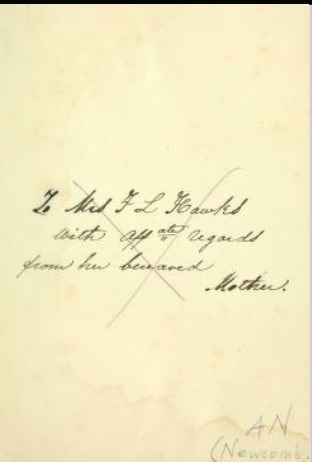 To Mrs F L Hawks
with aff ate regards
from her bereaved
Mother.
AN
(Newcomb,